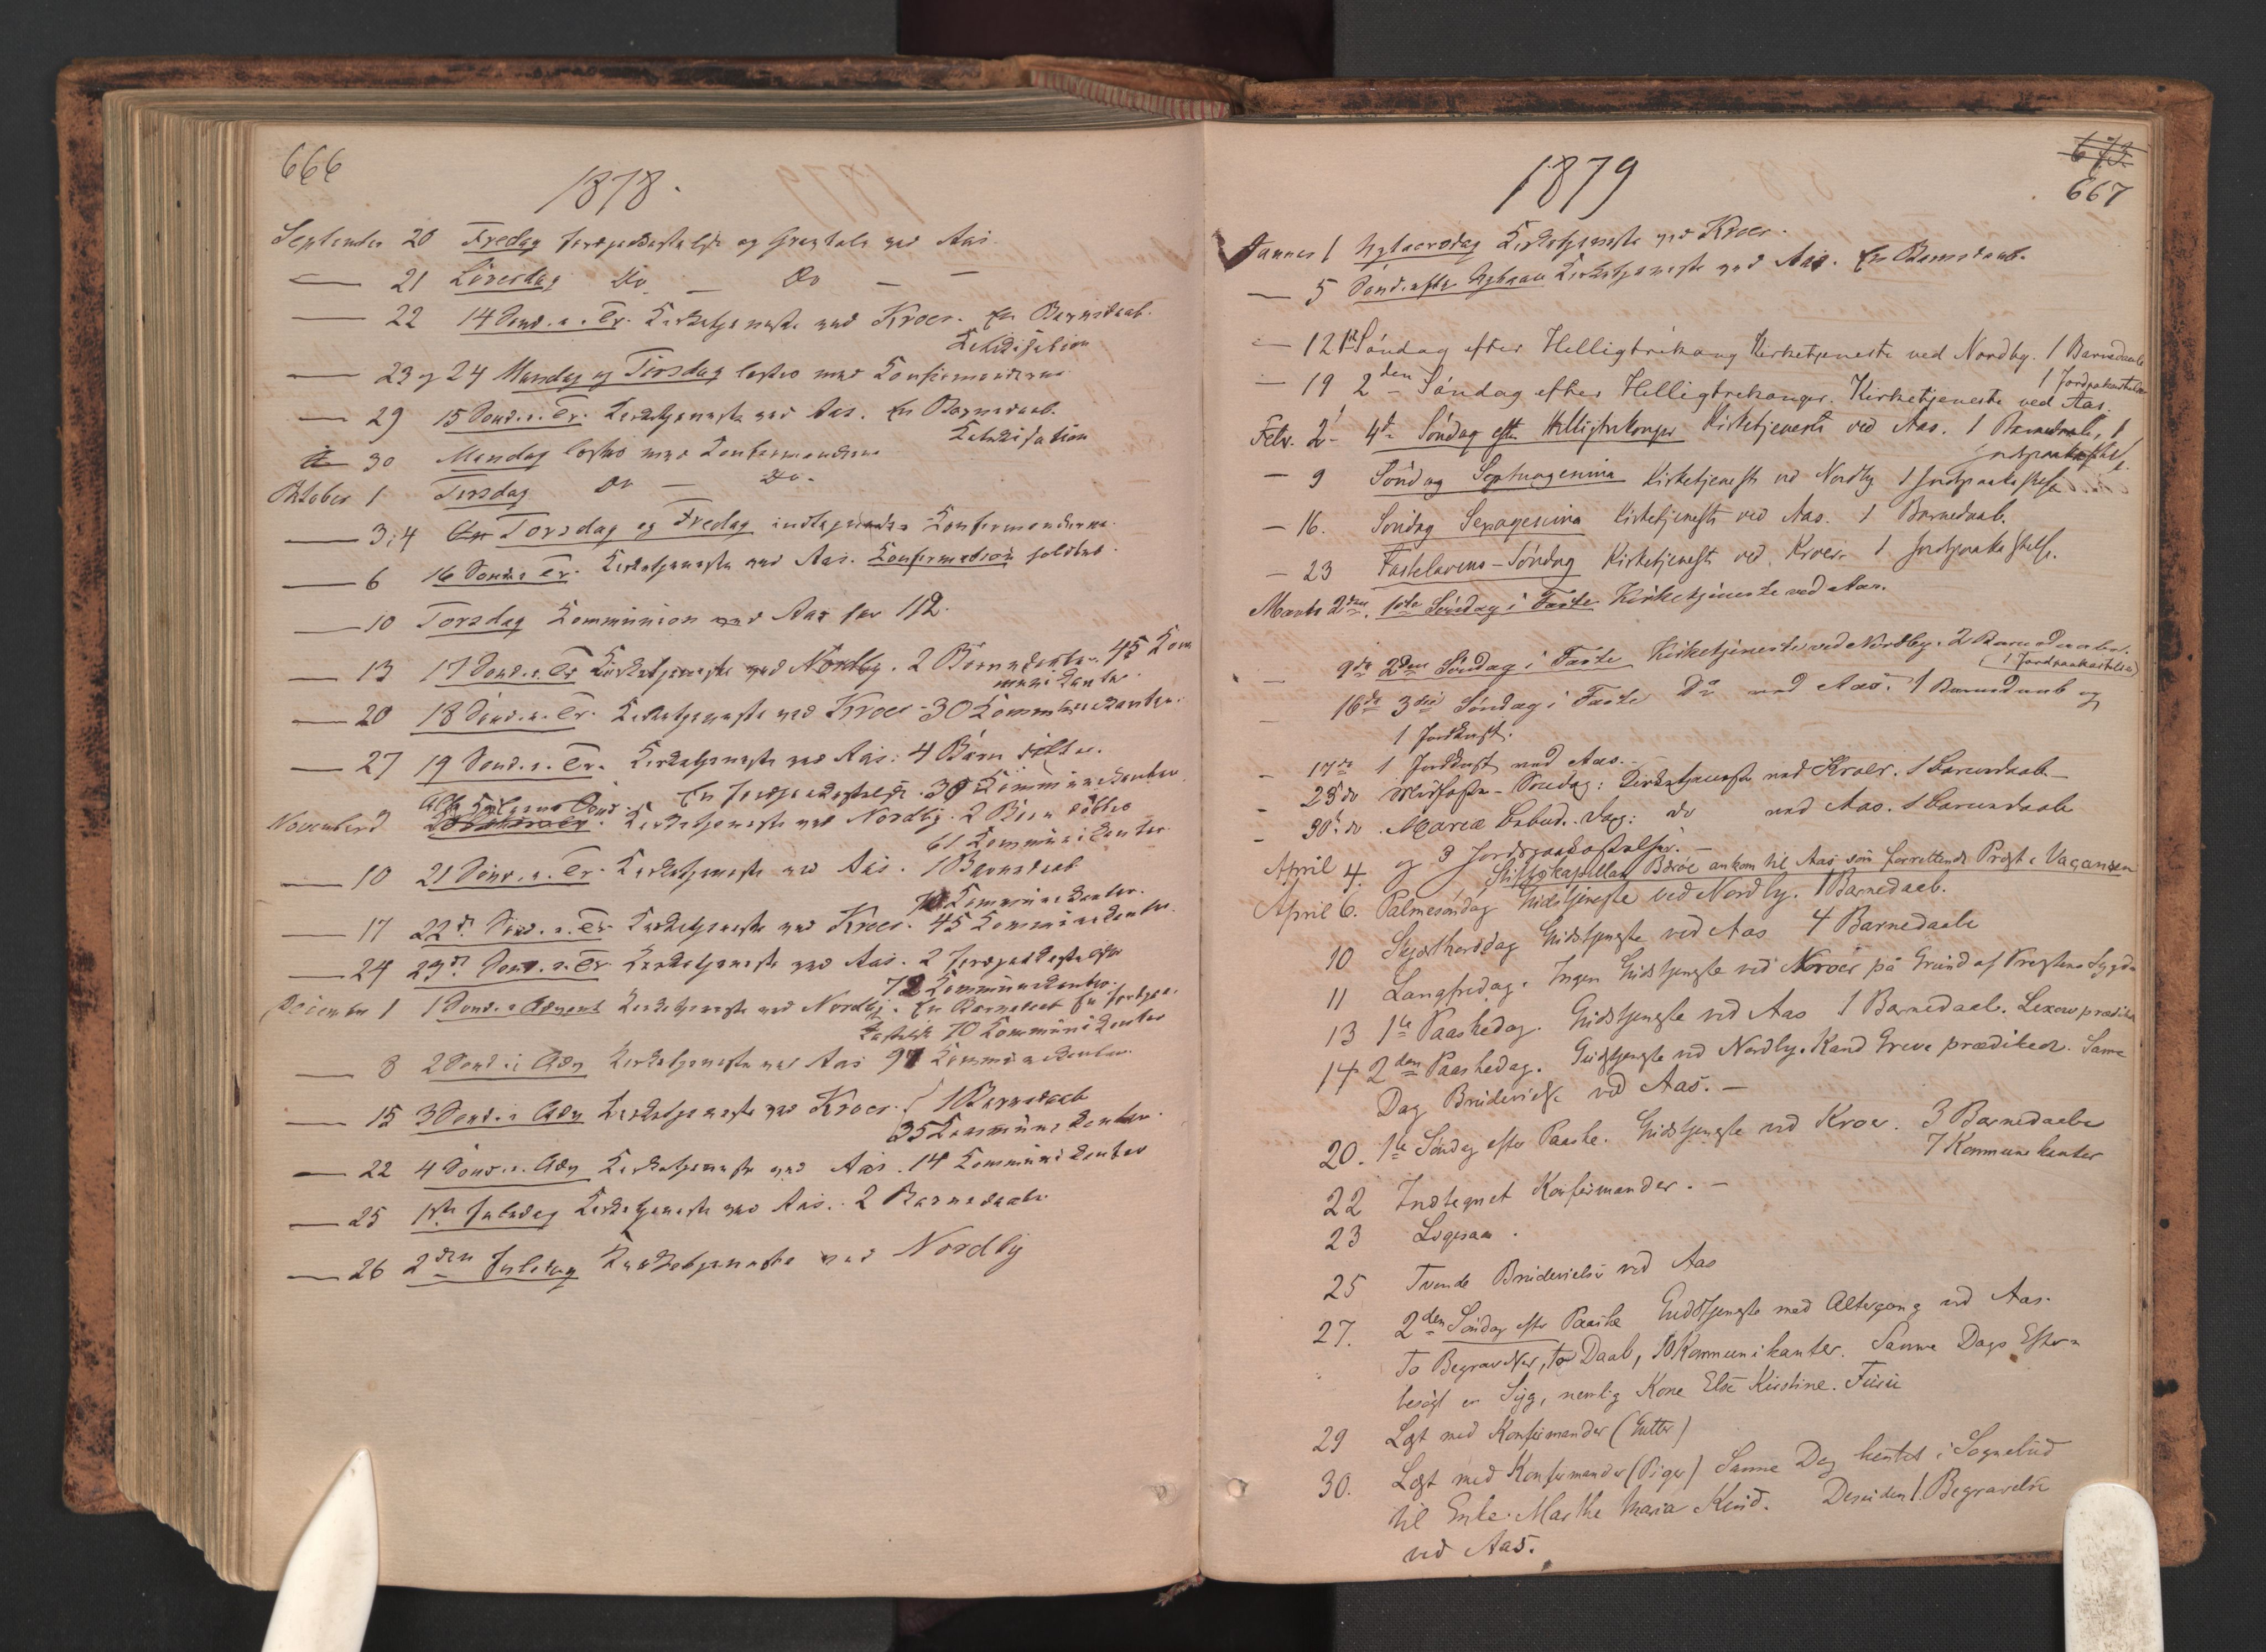 666
1878.
September 20 Fredag Jordpaakastelse og Gravtale ved Aas.
— 21 Löverdag Do — Do —
— 22 14 Sönd. e. Tr. Kirketjeneste ved Kroer. En Barnedaab.
Katekisation
— 23 og 24 Mandag og Tirsdag læstes med Konfirmanderne
— 29 15 Sönd. e. Tr. Kirketjeneste ved Aas. En Barnedaab.
Katekisation
— 30 Mandag læstes med Konfirmanderne
Oktober 1 Tirsdag Do — Do.
— 3, 4 Torsdag og Fredag Konfirmanderne.
— 6 16 Sönd. e. Tr. Kirketjeneste ved Aas. Konfirmation holdtes.
— 10 Torsdag Kommunion ved Aas for 112.
— 13 17 Sönd. e. Tr. Kirketjeneste ved Nordby. 2 Barnedaabe. 45 Kom
munikanter.
— 20 18 Sönd. e. Tr. Kirketjeneste ved Kroer. 30 Kommunikanter.
— 27 19 Sönd. e. Tr. Kirketjeneste ved Aas. 4 Börn döbte.
En Jordpaakastelse. 30 Kommunikanter.
November 3 Alle Helgens Sönd. Kirketjeneste ved Nordby. 2 Börn döbtes
61 Kommunikanter.
— 10 21 Sönd. e. Tr. Kirketjeneste ved Aas. 1 Barnedaab
Kommunikanter.
— 17 22de Sönd. e. Tr. Kirketjeneste ved Kroer. 45 Kommunikanter.
— 24 23de Sönd. e. Tr. Kirketjeneste ved Aas. 2 Jordpaakastelser
72 Kommunikanter.
December 1 1 Sönd. i Advent Kirketjeneste ved Nordby. En Barnedaab En Jordpaa-
kastelse 70 Kommunikanter
— 8 2 Sönd. i Adv Kirketjeneste ved Aas 97 Kommunikanter.
— 15 3 Sönd. i Adv Kirketjeneste ved Kroer. 1 Barnedaab
35 Kommunikanter.
— 22 4 Sönd. i Adv Kirketjeneste ved Aas. 14 Kommunikanter
— 25 1ste Juledag Kirketjeneste ved Aas. 2 Barnedaabe.
— 26 2den Juledag Kirketjeneste ved Nordby
673
667
1879
Januar 1 Nytaarsdag Kirketjeneste ved Kroer.
— 5 Sönd. efter Nytaar Kirketjeneste ved Aas. En Barnedaab.
— 12 1ste Söndag efter Helligtrekong Kirketjeneste ved Nordby. 1 Barnedaab
1 Jordpaakastelse
— 19 2den Söndag efter Helligtrekonger. Kirketjeneste ved Aas.
Febr. 2 - 4de Söndag efter Helligtrekonger Kirketjeneste ved Aas. 1 Barnedaab, 1
Jordpaakastelse.
— 9 Söndag Septuagesima Kirketjeneste ved Nordby 1 Jordpaakastelse
— 16. Söndag Sexagesima Kirketjeneste ved Aas. 1 Barnedaab.
— 23 Fastelavens-Söndag Kirketjeneste ved Kroer 1 Jordpaakastelse.
Marts 2den. 1ste Söndag i Faste Kirketjeneste ved Aas.
— 9de 2den Söndag i Faste Kirketjeneste ved Nordby. 2 Barnedaabe.
(1 Jordpaakastelse)
— 16de 3die Söndag i Faste Do ved Aas. 1 Barnedaab og
1 Jordkast.
— 17de 1 Jordkast ved Aas.
— 23de Midfaste-Söndag: Kirketjeneste ved Kroer. 1 Barnedaab—
— 30te do. Mariæ Bebud. Dag: do ved Aas. 1 Barnedaab
og 3 Jordpaakastelser. —
April 4. Stiftskapellan Börve ankom til Aas som forrettende Præst i Vacansen
April 6. Palmesöndag Gudstjeneste ved Nordby. 1 Barnedaab.
10 Skjærthorsdag Gudstjeneste ved Aas 4 Barnedaabe
11 Langfredag. Ingen Gudstjeneste ved Kroer på Grund af Prestens Sygd.
13 1ste Paaskedag. Gudstjeneste ved Aas 1 Barnedaab. Lexow prædiked
14 2den Paaskedag. Gudstjeneste ved Nordby. Kand Greve prædiked. Samme
Dag Brudevielse ved Aas. —
20. 1ste Söndag efter Paaske. Gudstjeneste ved Kroer. 3 Barnedaabe
7 Kommunikanter
22 Indtegnet Konfirmander. —
23 Ligesaa.
25 Tvende Brudevielser ved Aas
27. 2den Söndag efter Paaske Gudstjeneste med Altergang ved Aas.
To Begravelser, To Daab, 10 Kommunikanter. Samme Dags Efterm
besögt en Syg, nemlig Kone Else Kirstine.
29 Læst med Konfirmander (Gutter)
30. Læst med Konfirmander (Piger) Samme Dag hentet i Sognebud
til Enke Marthe Maria Desuden 1 Begravelse
ved Aas.